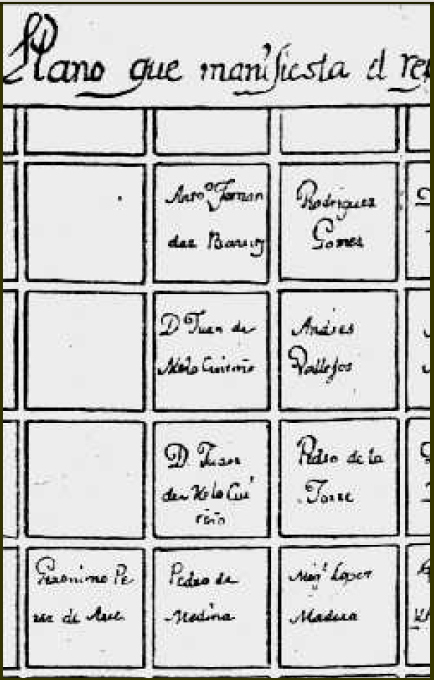 Plano que manifiesta el re
Anto Fernan
dez Baru
Rodriguez
Gomes
D Juan de
Melo
Andres
Vallejos
D. Juan
de Melo Cui
Pedro de la
Torre
Geronimo Pe
rez de
Pedro de
Medina
Lopez
Madera